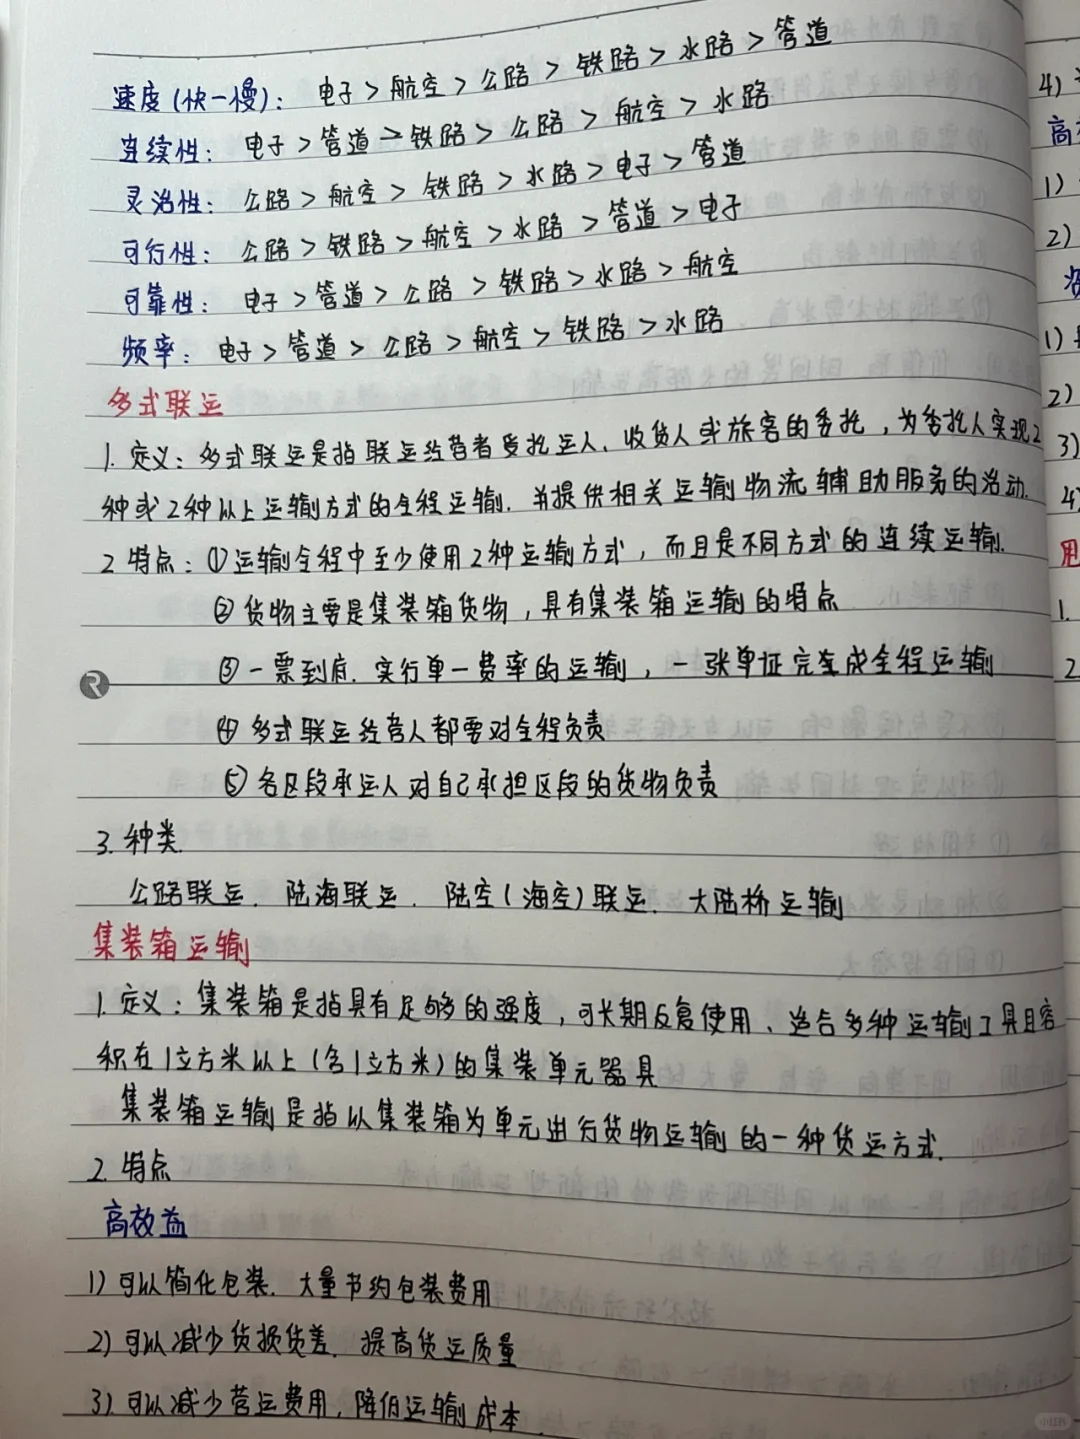 速度(快-慢): 电子 > 航空 > 公路 > 铁路 > 水路 > 管道
连续性: 电子 > 管道 > 铁路 > 公路 > 航空 > 水路
灵活性: 公路 > 航空 > 铁路 > 水路 > 电子 > 管道
可行性: 公路 > 铁路 > 航空 > 水路 > 管道 > 电子
可靠性: 电子 > 管道 > 公路 > 铁路 > 水路 > 航空
频率: 电子 > 管道 > 公路 > 航空 > 铁路 > 水路
多式联运
1. 定义:多式联运是指联运经营者受托运人、收货人或旅客的委托,为委托人实现2
种或2种以上运输方式的全程运输.并提供相关运输物流辅助服务的活动.
2 特点:①运输全程中至少使用2种运输方式,而且是不同方式的连续运输.
②货物主要是集装箱货物,具有集装箱运输的特点
③一票到底.实行单一费率的运输,一张单证完成全程运输
④多式联运经营人都要对全程负责
⑤各区段承运人对自己承担区段的货物负责
3. 种类.
公路联运. 陆海联运. 陆空(海空)联运. 大陆桥运输
集装箱运输
1. 定义:集装箱是指具有足够的强度,可长期反复使用、适合多种运输工具且容
积在1立方米以上(含1立方米)的集装单元器具
集装箱运输是指以集装箱为单元进行货物运输的一种货运方式.
2. 特点
高效益
1) 可以简化包装. 大量节约包装费用
2) 可以减少货损货差. 提高货运质量
3). 可以减少营运费用,降低运输成本.
4)
高
1)
2)
1)
2)
3)
4)
1.
2
小红书